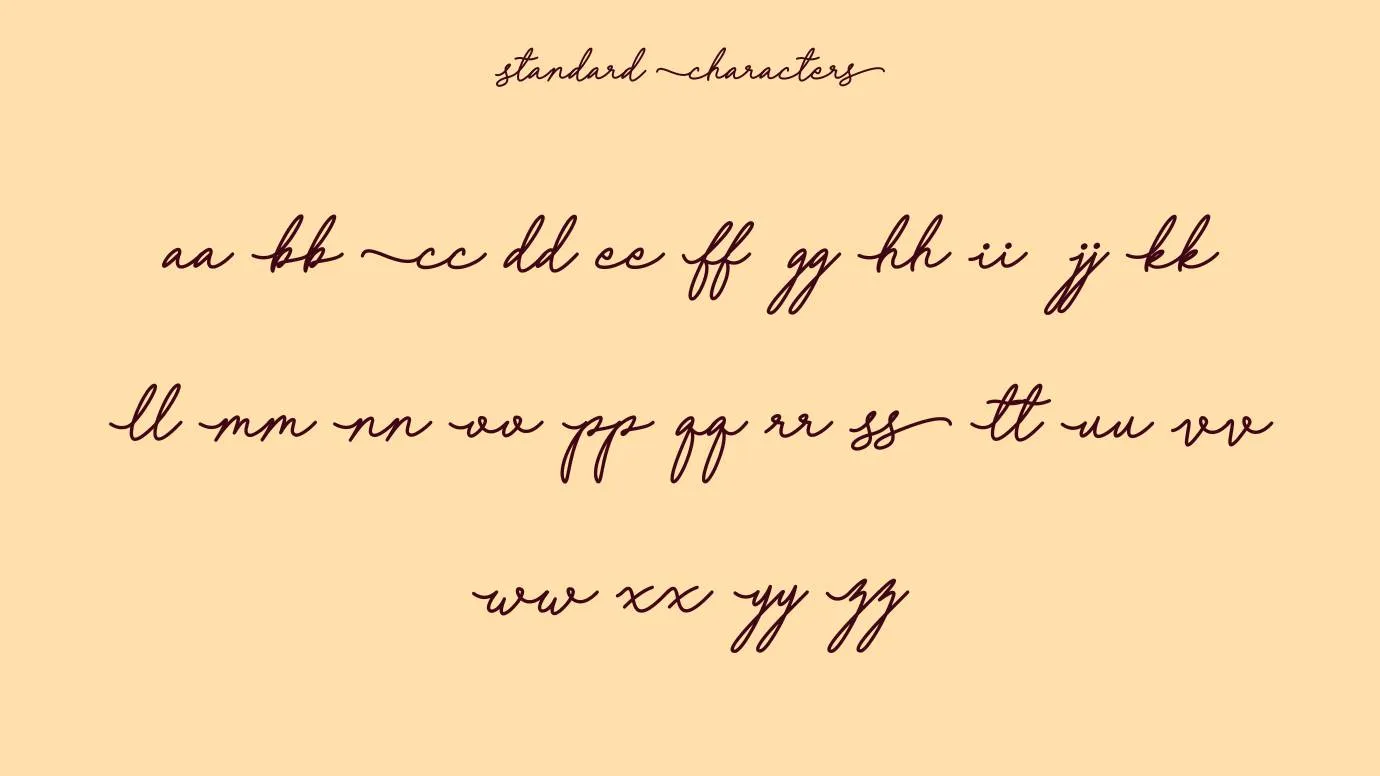 standard characters
aa bb cc dd ee ff gg hh ii jj kk
ll mm nn oo pp qq rr ss tt uu vv
ww xx yy zz